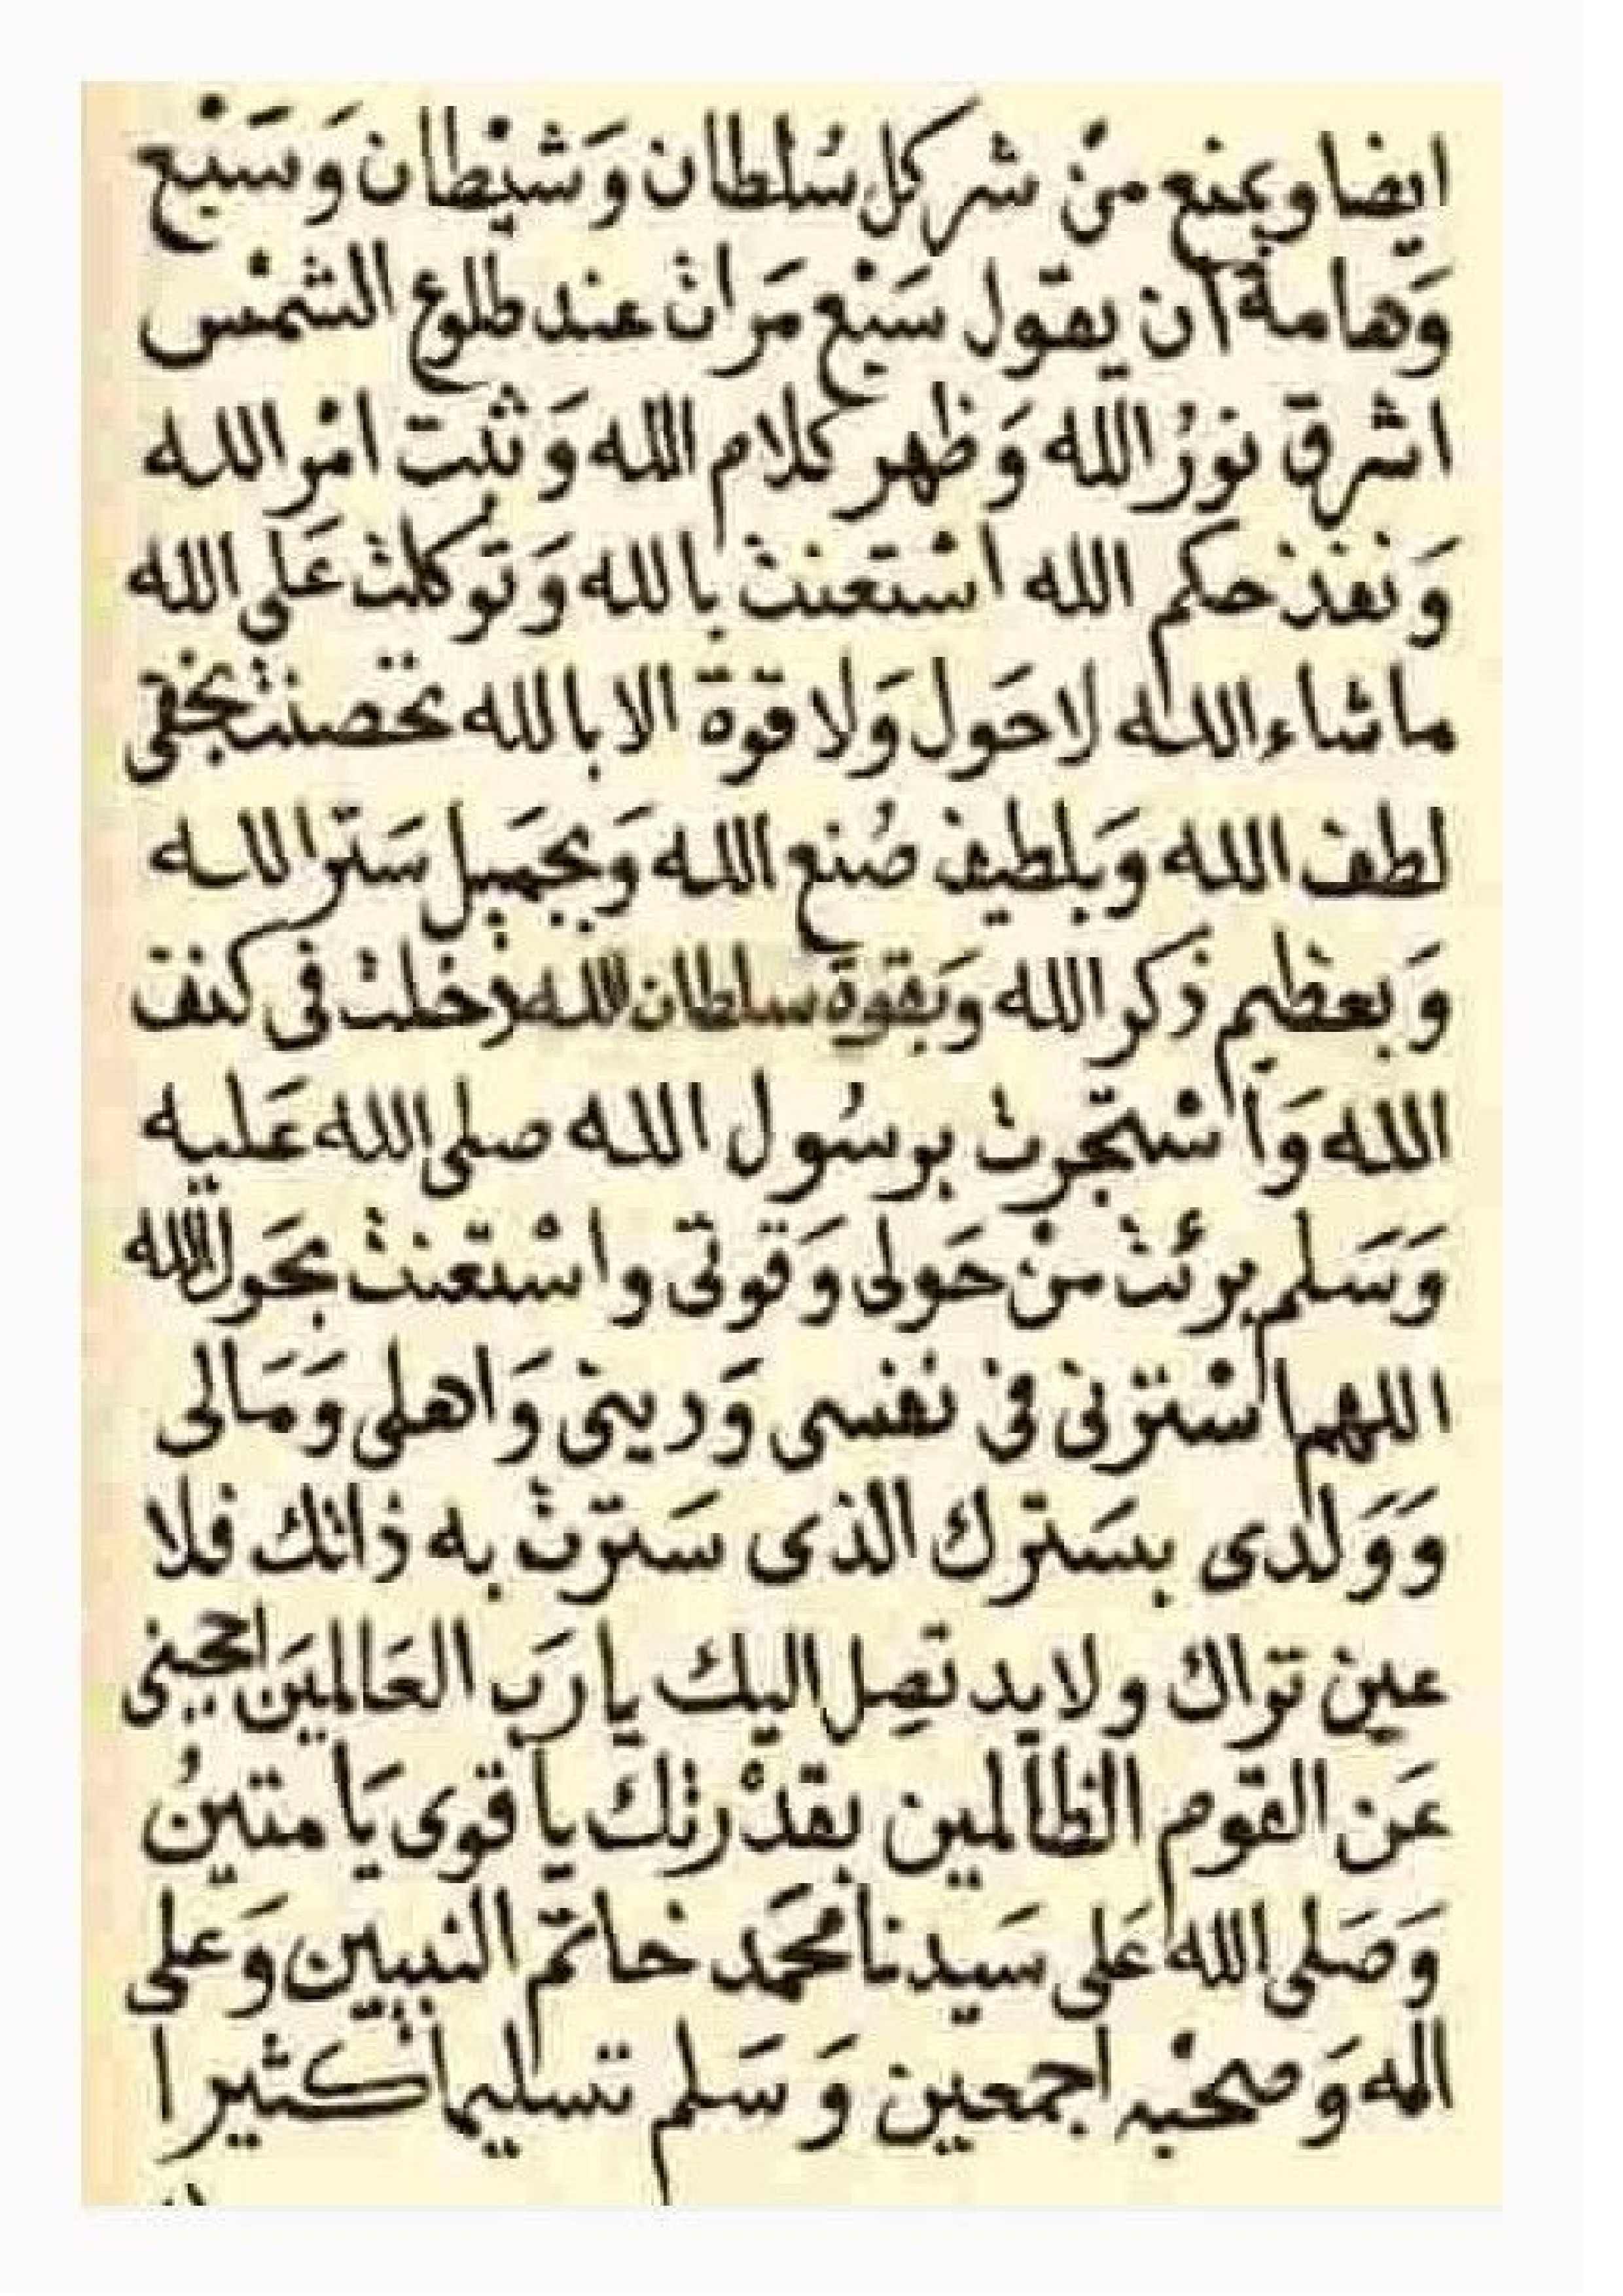 ايضا ويمنع منْ شر كل سُلطان وَشيْطان وَسَبْع
وَهامة أن يقول سَبْع مَرات عند طلوع الشمْس
اشرق نورُ الله وَظهر كلام الله وَثبت امْر الله
وَنفذ حكم الله اسْتعنت بالله وَتوكلت عَلى الله
ما شاء الله لا حَول وَلا قوة الا بالله تحصنت بخفى
لطف الله وَبلطيف صُنع الله وَبجَميل سَتر الله
وَبعظيم ذكر الله وَبقوة سلطان الله دخلت فى كنف
الله وَاسْتجرت برسُول الله صلى الله عَليه
وَسَلم برئت منْ حَولى وَقوتى واسْتعنت بحَول الله
اللهم اسْترْنى فى نفسى وَدينى وَاهلى وَمَالى
وَوَلدى بسَترك الذى سَترْت به ذاتك فلا
عين تراك ولا يد تصِل اليك يا رَب العَالمينَ احجبنى
عَن القوم الظالمين بقدْرتك يا قوى يَا متينُ
وَصَلى الله عَلى سَيدنا محمَد خاتم النبيين وَعلى
اله وَصحْبه اجمعين وَسَلم تسليما كثيرا